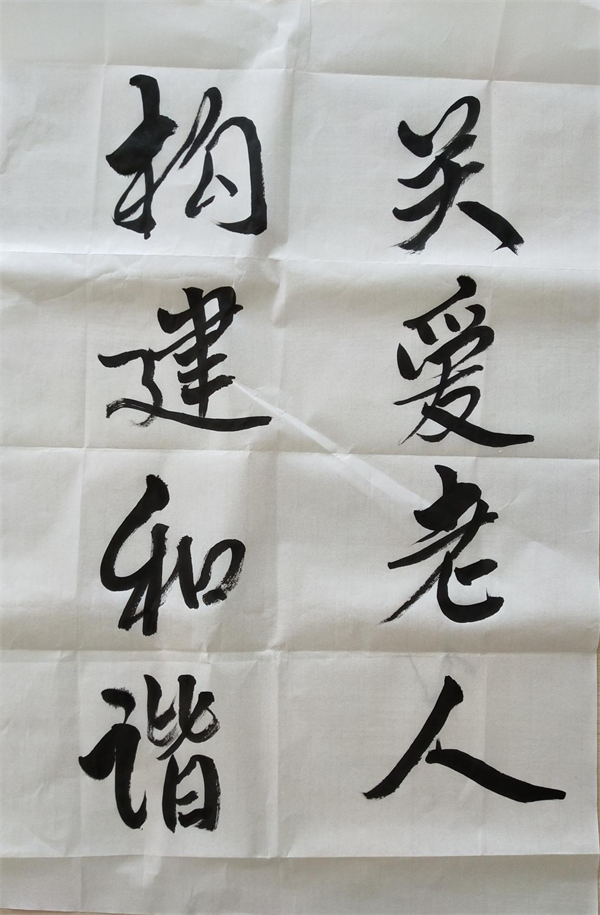 关爱老人
构建和谐